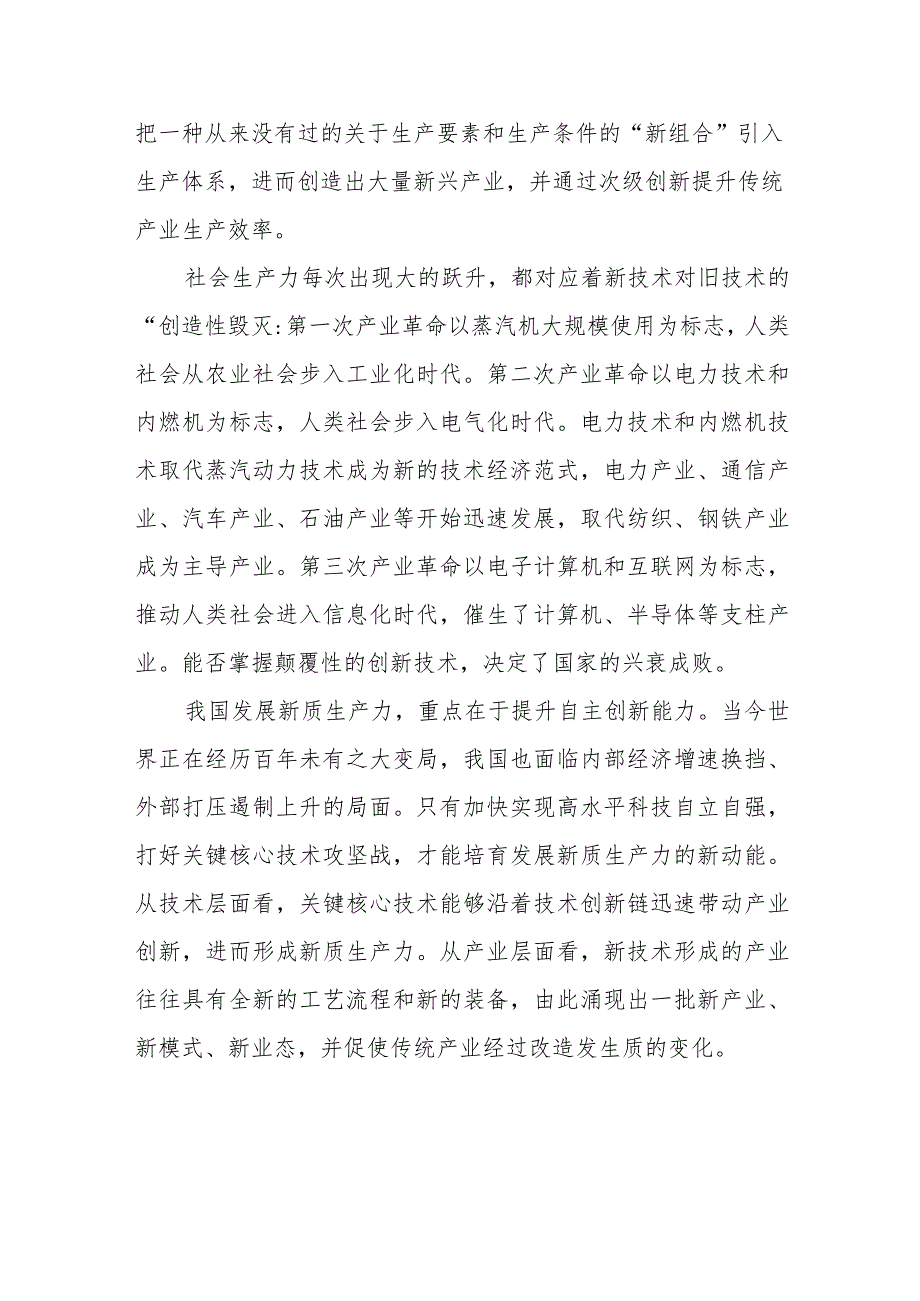 把一种从来没有过的关于生产要素和生产条件的“新组合”引入
生产体系，进而创造出大量新兴产业，并通过次级创新提升传统
产业生产效率。
社会生产力每次出现大的跃升，都对应着新技术对旧技术的
“创造性毁灭:第一次产业革命以蒸汽机大规模使用为标志，人类
社会从农业社会步入工业化时代。第二次产业革命以电力技术和
内燃机为标志，人类社会步入电气化时代。电力技术和内燃机技
术取代蒸汽动力技术成为新的技术经济范式，电力产业、通信产
业、汽车产业、石油产业等开始迅速发展，取代纺织、钢铁产业
成为主导产业。第三次产业革命以电子计算机和互联网为标志，
推动人类社会进入信息化时代，催生了计算机、半导体等支柱产
业。能否掌握颠覆性的创新技术，决定了国家的兴衰成败。
我国发展新质生产力，重点在于提升自主创新能力。当今世
界正在经历百年未有之大变局，我国也面临内部经济增速换挡、
外部打压遏制上升的局面。只有加快实现高水平科技自立自强，
打好关键核心技术攻坚战，才能培育发展新质生产力的新动能。
从技术层面看，关键核心技术能够沿着技术创新链迅速带动产业
创新，进而形成新质生产力。从产业层面看，新技术形成的产业
往往具有全新的工艺流程和新的装备，由此涌现出一批新产业、
新模式、新业态，并促使传统产业经过改造发生质的变化。